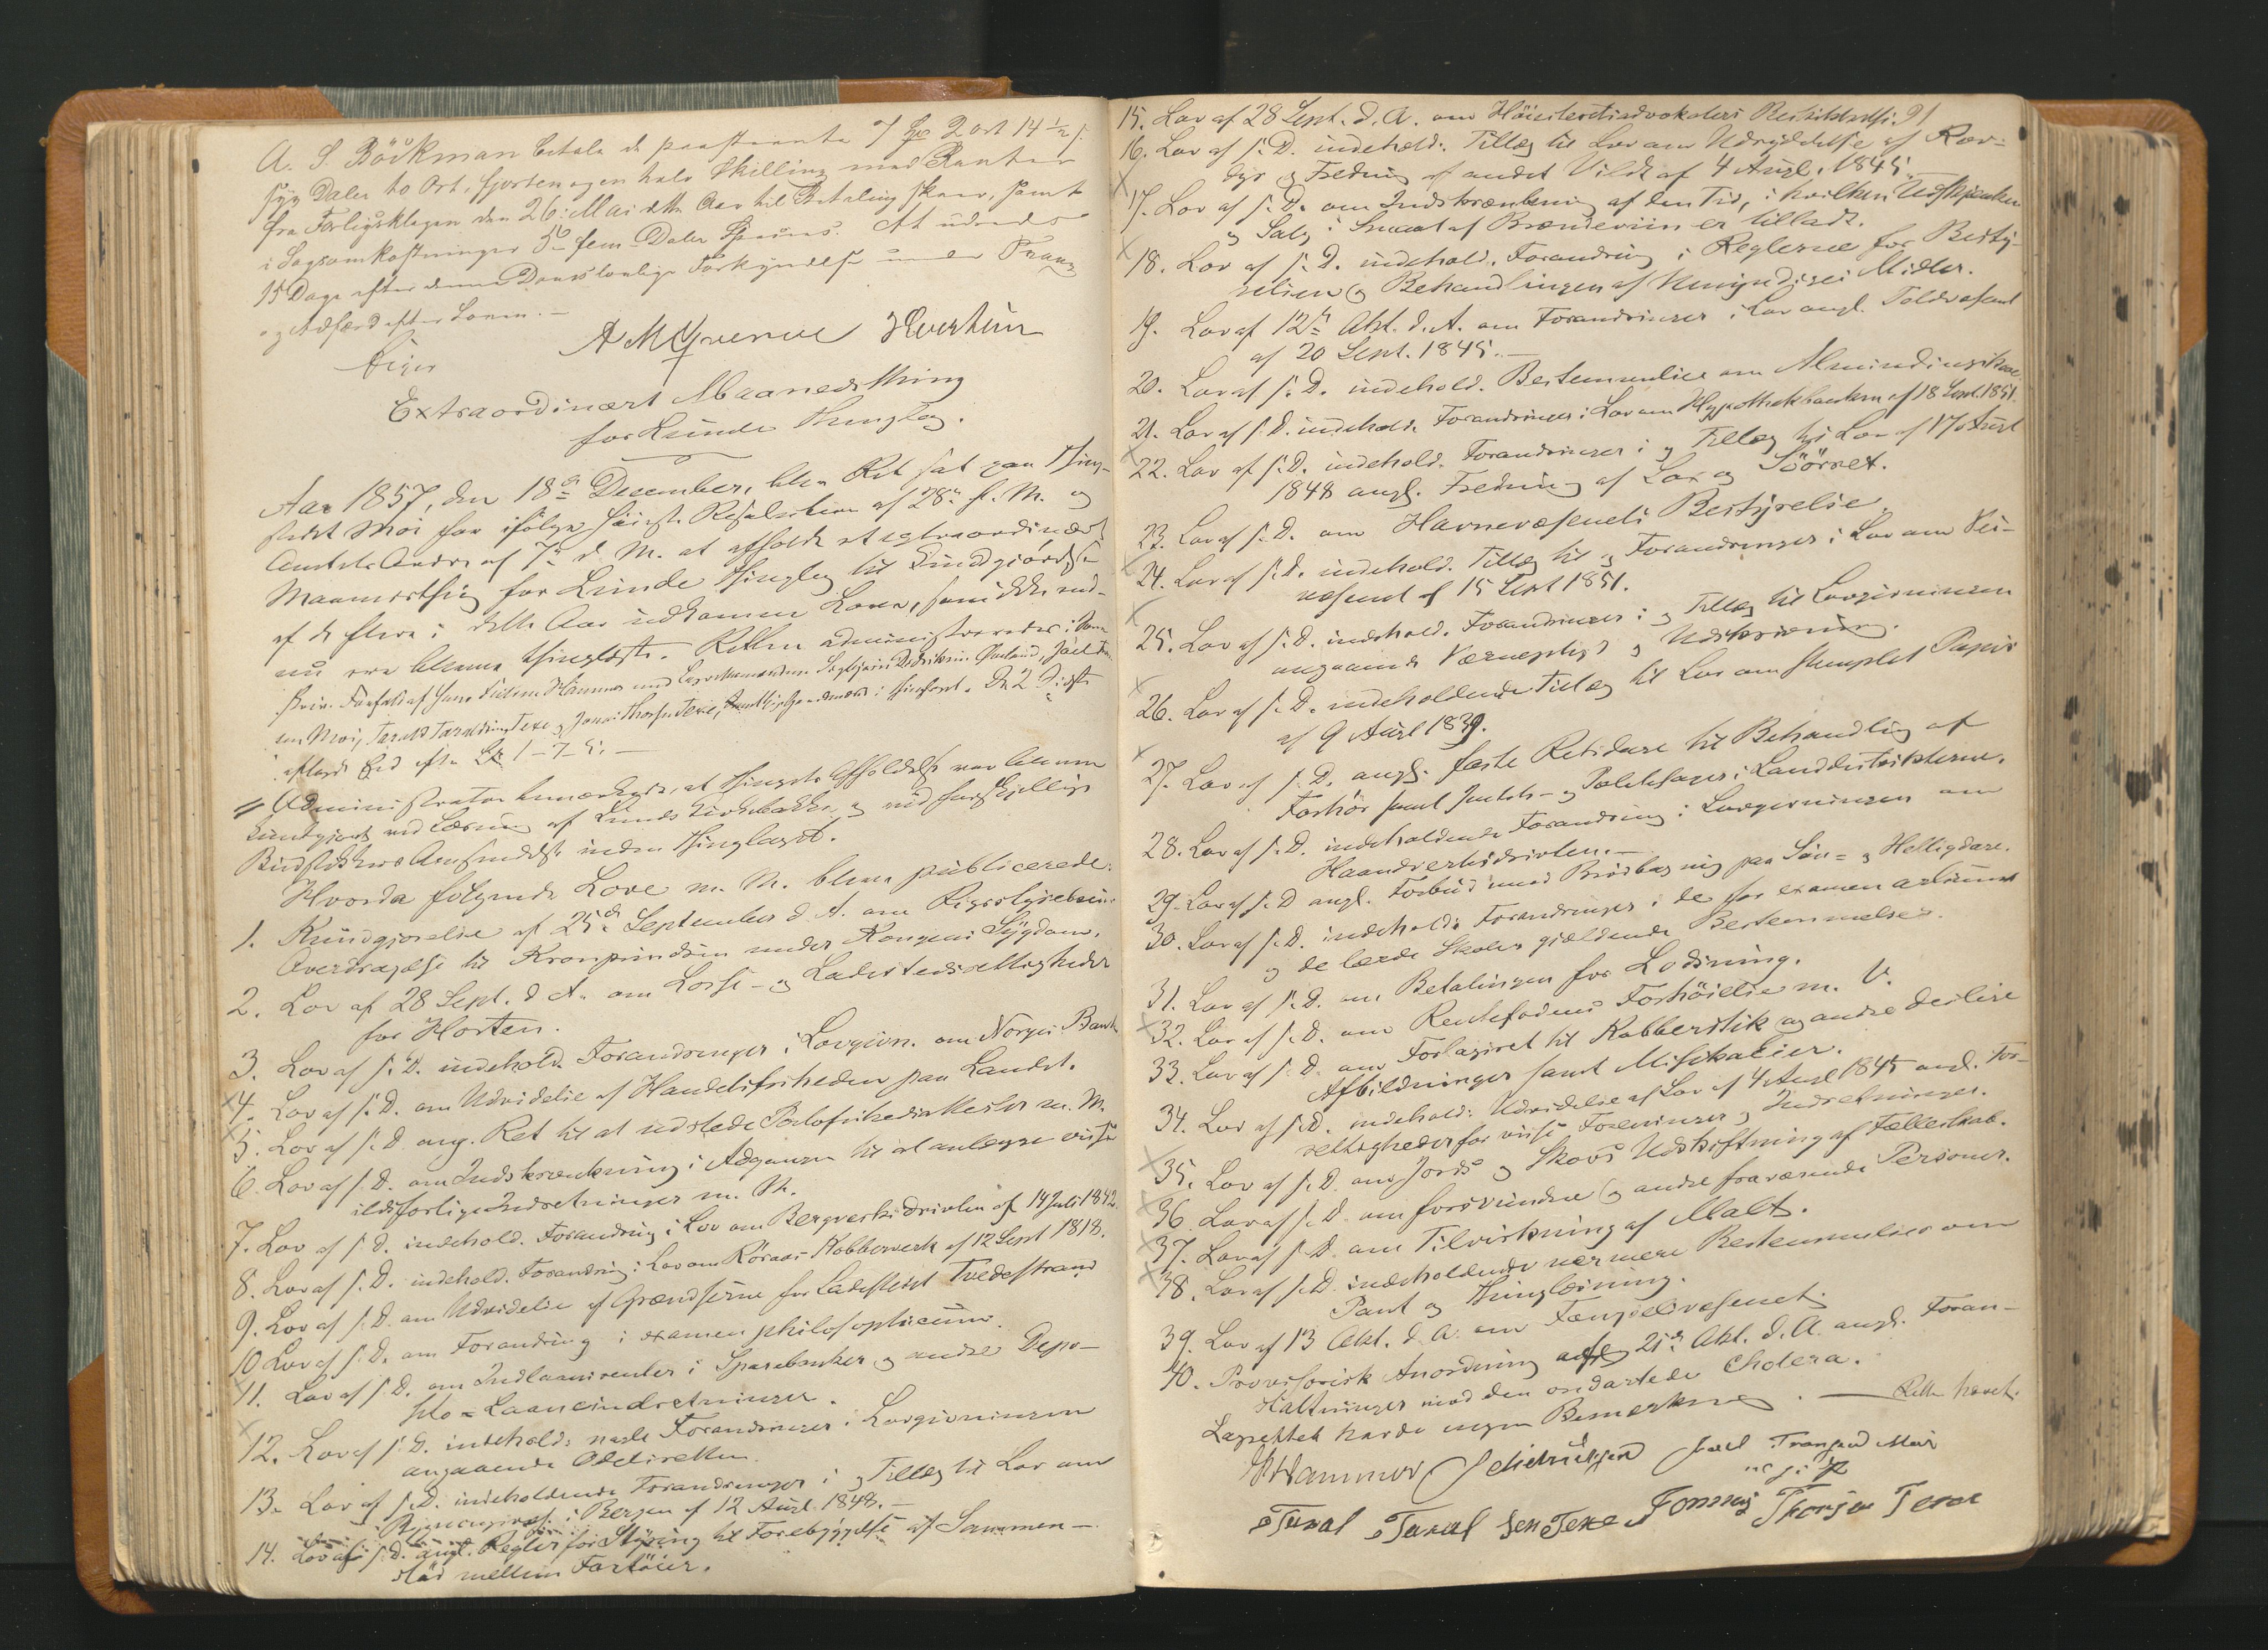 A. S. Böckman betale de paastevnte 7 Spd 2 ort 14 1/2 s
syv Daler to Ort, fjorten og en halv Skilling med Renter
fra Forligsklagen den 26. Mai dette Aar til Betaling skeer, samt
i Sagsomkostninger 5 fem Daler Species. At udredes
15 Dage efter denne Doms lovlige Forkyndelse under
og Adfærd efter Loven.
Extraordinært Maanedsthing
for Lunde Thinglag.
Aar 1857, den 18de December, blev Ret sat paa Thing-
stedet Moi for ifölge höieste Resolution af 28de f. M. og
Amtets Ordre af 7de d. M. at afholde et extraordinært
Maanedsthing for Lunde Thinglag til Kundgjörelse
af de flere i dette Aar udkomne Love, som ikke end-
nu ere blevne thinglyste. Retten administreredes i
aflagt Ed efter L. 1-7-5.
Administrator bemærkede, at Thingets Afholdelse var bleven
kundgjort ved Læsning af Lunds Kirkebakke, og ved forskjellige
Budstikkers Omsendelse inden Thinglaget.
Hvorda følgende Love m. M. bleve publicerede:
1. Kundgjørelse af 25de September d. A. om Rigsstyrelsens
Overdragelse til Kronprindsen under Kongens Sygdom.
2. Lov af 28 Sept. d. A. om Losse- og Ladestedsrettigheder
for Horten.
3. Lov af s. D. indehold. Forandringer i Lovgivn. om Norges Bank
4. Lov af s. D. om Udvidelse af Handelsfriheden paa Landet.
5. Lov af s. D. ang. Ret til at udstede Portofrihedsattester m. M.
6. Lov af s. D. om Indskrænkning i Adgangen til at anlægge visse
ildsfarlige Indretninger m. M.
7. Lov af s. D. indehold. Forandring i Lov om Bergverksdriften af 14 Juli 1842.
8. Lov af s. D. indehold. Forandring i Lov om Röraas Kobberverk af 12 Sept 1818.
9. Lov af s. D. om Udvidelse af Grændserne for Ladestedet Tvedestrand
10 Lov af s. D. om Forandring i examen philosophicum.
11. Lov af s. D. om Indlaansrenter i Sparebanker og andre Depo-
sito- Laaneindretninger.
12. Lov af s. D. indehold. nogle Forandringer i Lovgivningen
angaaende Odelsretten.
13. Lov af s. D. indeholdende Forandringer i og Tillæg til Lov om
i Bergen af 12 Augl. 1848.
14. Lov af s. D. angl. Regler for Styring til Forebyggelse af Sammen-
stöd mellem Fartöier.
15. Lov af 28 Sept. d. A. om Höiesteretsadvokaters
16. Lov af s. D. indehold. Tillæg til Lov om Udryddelse af Rov-
dyr og Fredning af andet Vildt af 4 Augl. 1845.
17. Lov af s. D. om Indskrænkning af den Tid, i hvilken Udskjænken
og Salg i Smaat af Brændeviin er tilladt.
18. Lov af s. D. indehold. Forandring i Reglerne for Besty-
relsen og Behandlingen af Umyndiges Midler.
19. Lov af 12te Okt. d. A. om Forandringer i Lov angl. Toldvæsenet
af 20 Sept. 1845.
20. Lov af s. D. indehold. Bestemmelser om Almindingsskove
21. Lov af s. D. indehold. Forandringer i Lov om Hypothekbanken af 18 Sept. 1851.
22. Lov af s. D. indehold. Forandringer i og Tillæg til Lov af 17 Augl
1848 angl. Fredning af Lax og Söörret.
23. Lov af s. D. om Havnevæsenets Bestyrelse.
24. Lov af s. D. indehold. Tillæg til og Forandringer i Lov om Vei-
væsenet af 15 Sept 1851.
25. Lov af s. D. indehold. Forandringer i og Tillæg til Lovgivningen
angaaende Værnepligt og Udskrivning.
26. Lov af s. D. indeholdende Tillæg til Lov om stemplet Papir
af 9 Augl 1839.
27. Lov af s. D. angl. faste Retsdage til Behandling af
Forhör samt Gjelds- og Politisager i Landdistrikterne.
28. Lov af s. D. indeholdende Forandring i Lovgivningen om
Haandverksdriften.
29. Lov af s. D. angl. Forbud mod Brödbagning paa Søn- og Helligdage.
30. Lov af s. D. indehold. Forandringer i de for examen artium
og de lærde Skoler gjældende Bestemmelser.
31. Lov af s. D. om Betalingen for Lodsning.
32. Lov af s. D. om Rentefodens Forhöielse m. V.
33. Lov af s. D. om Forlagsret til Kobberstik og andre deslige
Afbildninger samt Musikalier.
34. Lov af s. D. indehold. Udvidelse af Lov af 4 Augl 1845 angl. For-
rettigheder for visse Foreninger og Indretninger.
35. Lov af s. D. om Jords og Skovs Udskiftning af Fællesskab.
36. Lov af s. D. om forsvundne og andre fraværende Personer.
37. Lov af s. D. om Tilvirkning af Malt.
38. Lov af s. D. indeholdende nærmere Bestemmelser om
Pant og Thinglæsning.
39. Lov af 13 Okt. d. A. om Fængselsvæsenet.
40. Provisorisk Anordning af 21de Okt. d. A. angl. Foran-
staltninger mod den ondartede Cholera.
Lagrettet havde ingen Bemærkning. — Retten hævet.
Hammer